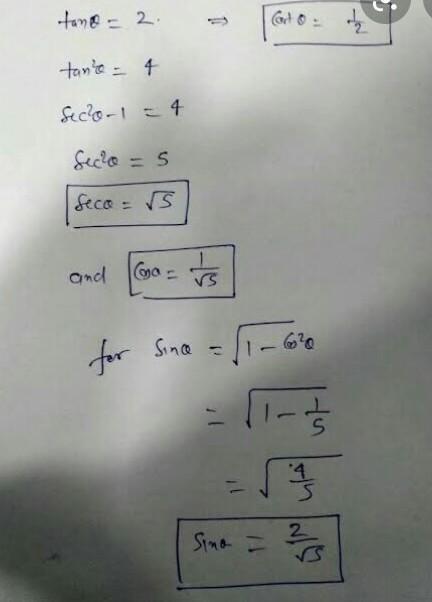 tanθ = 2. ⇒ Cotθ = 1/2
tan²θ = 4
Sec²θ-1 = 4
Sec²θ = 5
Secθ = √5
and Cosθ = 1/√5
for Sinθ = √(1-Cos²θ)
= √(1-1/5)
= √(4/5)
Sinθ = 2/√5